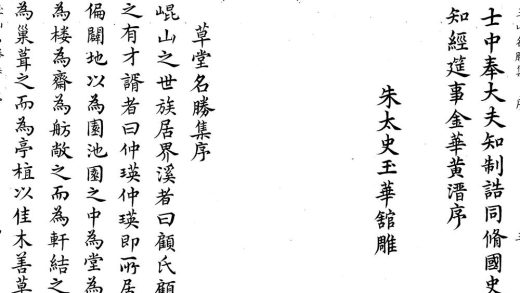 士中奉大夫知制誥同脩國史
知經筵事金華黃溍序
朱太史玉華舘雕
草堂名勝集序
崐山之世族居界溪者曰顧氏顧
之有才諝者曰仲瑛仲瑛即所居
偏闢地以為園池園之中為堂為
為樓為齋為舫敞之而為軒結之
為巢葺之而為亭植以佳木善草